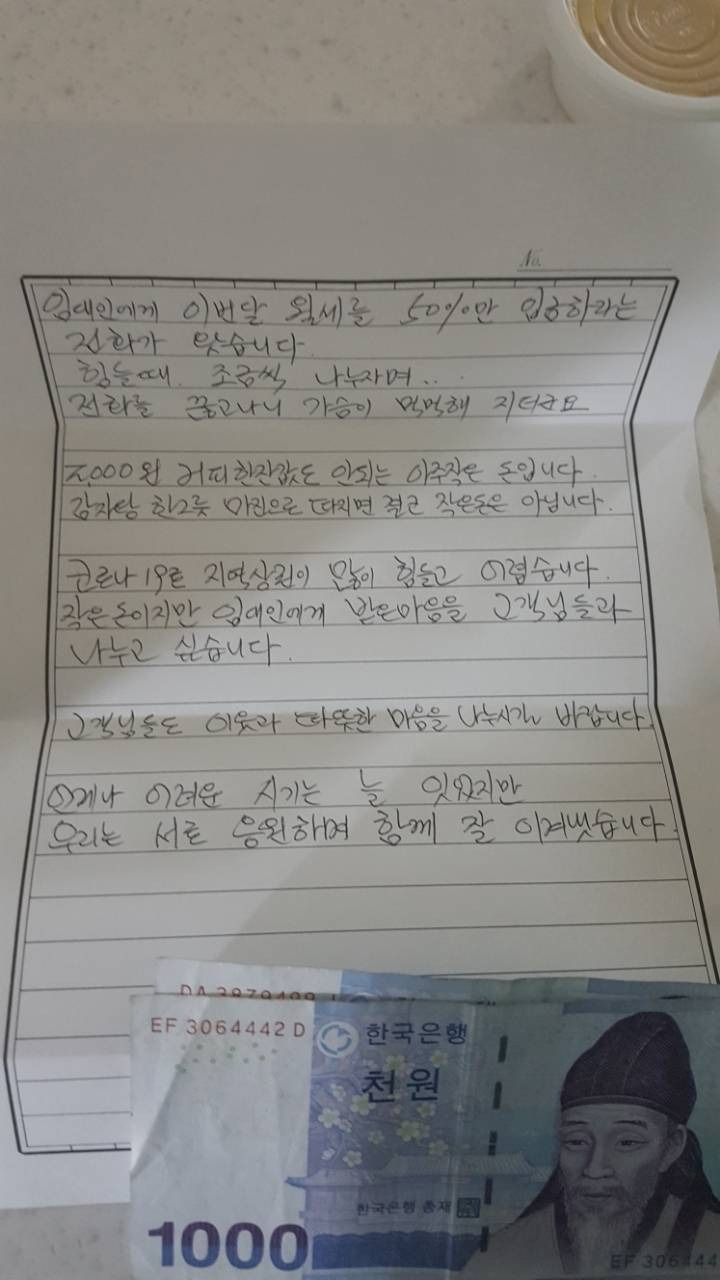 No.
임대인에게 이번달 월세를 50%만 입금하라는
전화가 왓습니다.
힘들때. 조금씩 나누자며...
전화를 끊고나니 가슴이 먹먹해 지더군요
2,000원 커피한잔값도 안되는 아주작은 돈입니다.
감자탕 한그릇 마진으로 따지면 결코 작은돈은 아닙니다.
코로나19로 지역상권이 많이 힘들고 어렵습니다.
작은돈이지만 임대인에게 받은마음을 고객님들과
나누고 싶습니다.
고객님들도 이웃과 따뜻한 마음을 나누시길 바랍니다.
언제나 어려운 시기는 늘 잇었지만
우리는 서로 응원하며 함께 잘 이겨냇습니다.
EF 3064442 D
한국은행
천원
한국은행 총재
1000